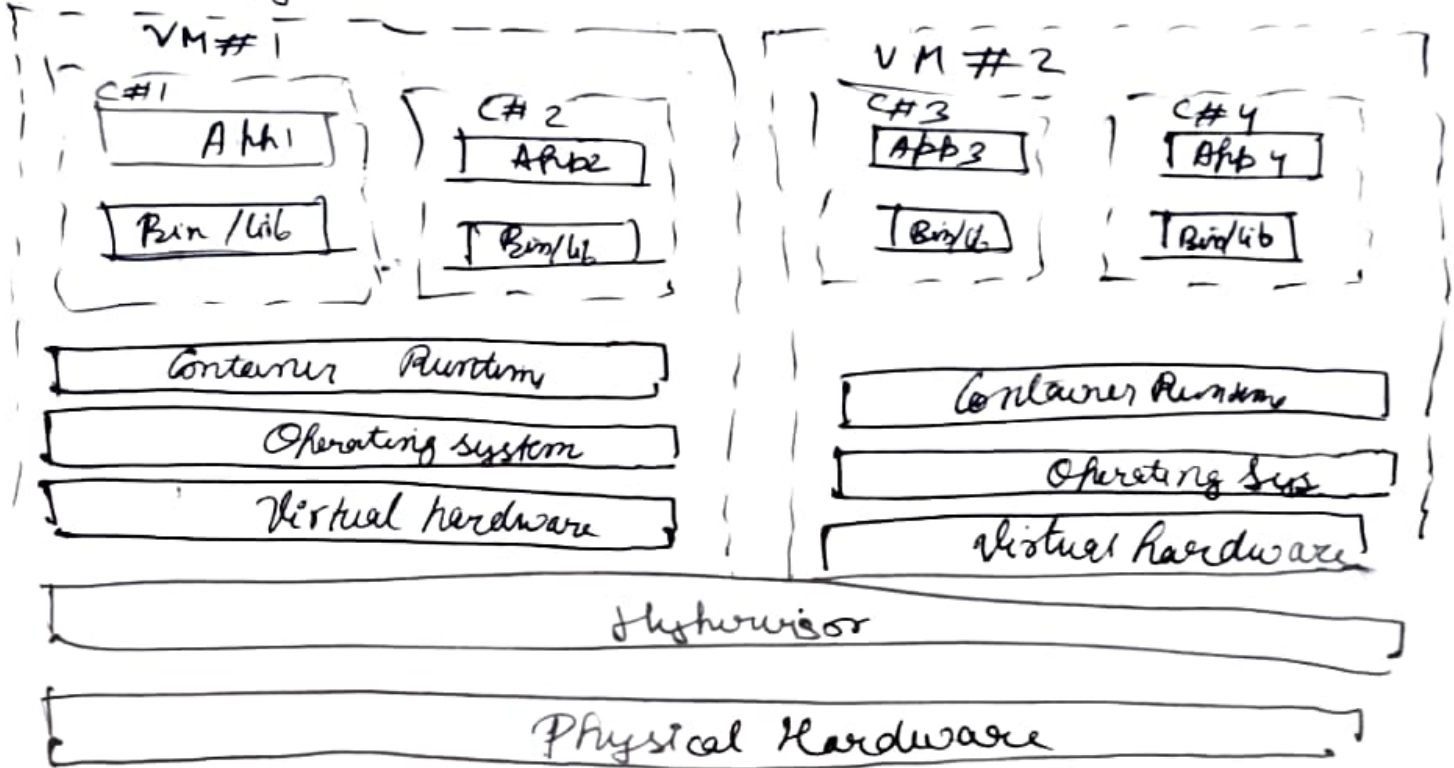 VM#1
C#1
App1
Bin/Lib
C#2
App2
Bin/Lib
Container Runtime
Operating system
Virtual hardware
VM#2
C#3
App3
Bin/Li
C#4
App4
Bin/Lib
Container Runtime
Operating Sys
Virtual hardware
Hypervisor
Physical Hardware